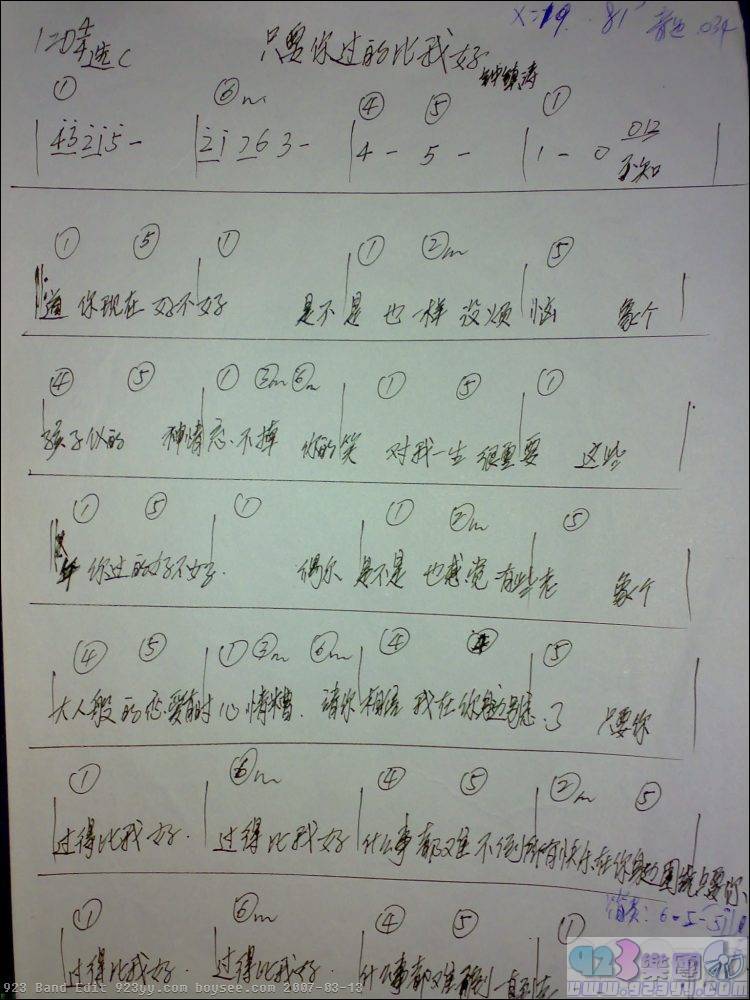 1=D 4/4 选C 只要你过的比我好 钟镇涛 X=19. 81' 音色 034
① ⑥m ④ ⑤ ①
4 3 2 1 5 - | 2 1 7 6 3 - | 4 - 5 - | 1 - 0 012 |
不知
① ⑤ ① ① ②m ⑤
道 你现在 好不好 是不是 也一样 没烦恼 象个
④ ⑤ ① ③m ⑥m ① ⑤ ①
孩子似的 神情忘不掉 你的笑 对我一生 很重要 这些
① ⑤ ① ① ②m ⑤
年 你过的好不好 偶尔 是不是 也感觉 有些老 象个
④ ⑤ ① ③m ⑥m ④ ④ ⑤
大人般 的恋爱 有时 心情糟 请你相信 我在你身边 别忘了 只要你
① ⑥m ④ ⑤ ②m ⑤
过得比我好 过得比我好 什么事都难不倒 所有快乐在你身边围绕 只要你
① ⑥m ④ ⑤ ①
过得比我好 过得比我好 什么事都难不倒 一直到老
923 Band Edit 923yy.com boysee.com 2007-03-13
923樂團
www.923yy.com